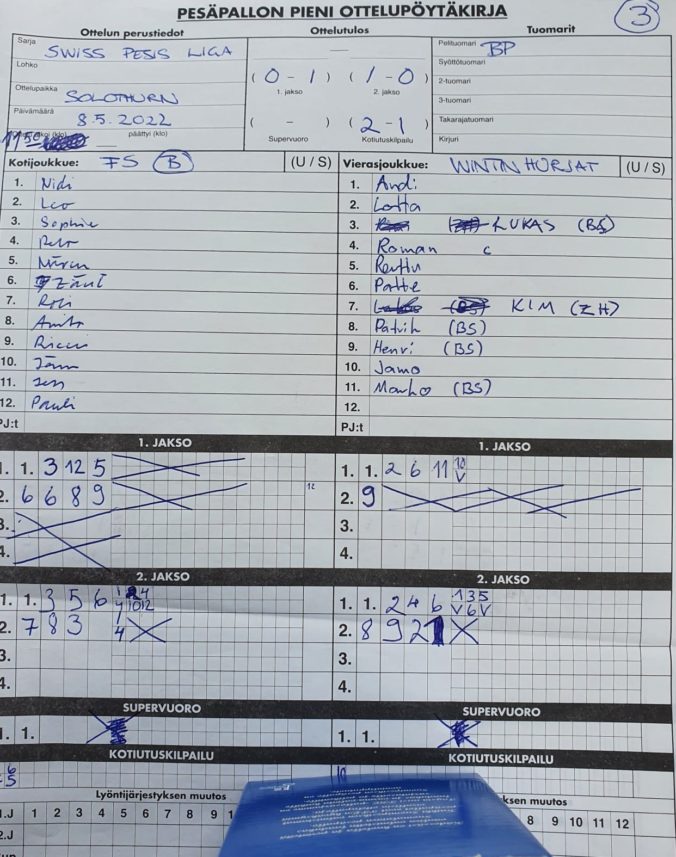 PESÄPALLON PIENI OTTELUPÖYTÄKIRJA
3
Ottelun perustiedot
Ottelutulos
Tuomarit
Sarja
SWISS PESIS LIGA
Lohko
Ottelupaikka
SOLOTHURN
Päivämäärä
8.5.2022
päättyi (klo)
( 0 - 1 ) ( 1 - 0 )
1. jakso 2. jakso
( - ) ( 2 - 1 )
Supervuoro Kotiutuskilpailu
Pelituomari BP
Syöttötuomari
2-tuomari
3-tuomari
Takarajatuomari
Kirjuri
Kotijoukkue: FS (B) (U / S)
1. Nidi
2. Leo
3. Sophie
4. Reto
5.
6. Zäni
7. Roli
8. Anita
9. Ricci
10. Jäm
11.
12. Pauli
PJ:t
Vierasjoukkue: WINTIN HURJAT (U / S)
1. Andi
2. Lotta
3. LUKAS (BS)
4. Roman c
5. Renttu
6. Patte
7. KIM (ZH)
8. Patrik (BS)
9. Henri (BS)
10. Jamo
11. Marko (BS)
12.
PJ:t
1. JAKSO
1. 1. 3 12 5
2. 6 6 8 9
12
3.
4.
1. JAKSO
1. 1. 2 6 11 10 V
2. 9
3.
4.
2. JAKSO
1. 1. 3 5 6
2. 7 8 3
3.
4.
2. JAKSO
1. 1. 2 4 6 1 3 5
V 6 V
2. 8 9 2 1
3.
4.
SUPERVUORO
1. 1.
SUPERVUORO
1. 1.
KOTIUTUSKILPAILU
6
5
KOTIUTUSKILPAILU
10
Lyöntijärjestyksen muutos
1.J 1 2 3 4 5 6 7 8 9
2.J
ksen muutos
8 9 10 11 12